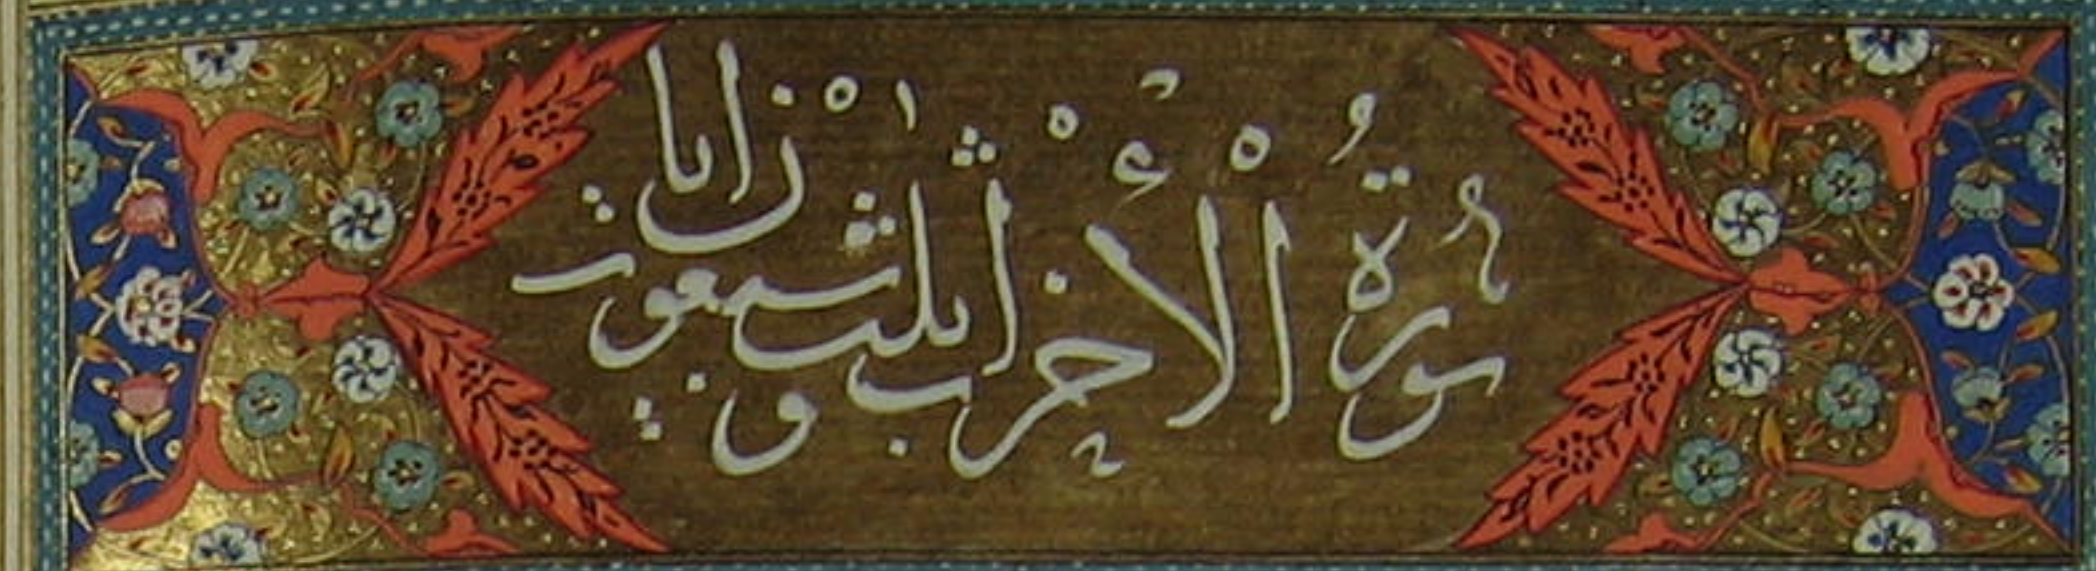 سورة الاحزاب ثلث و سبعون ايات